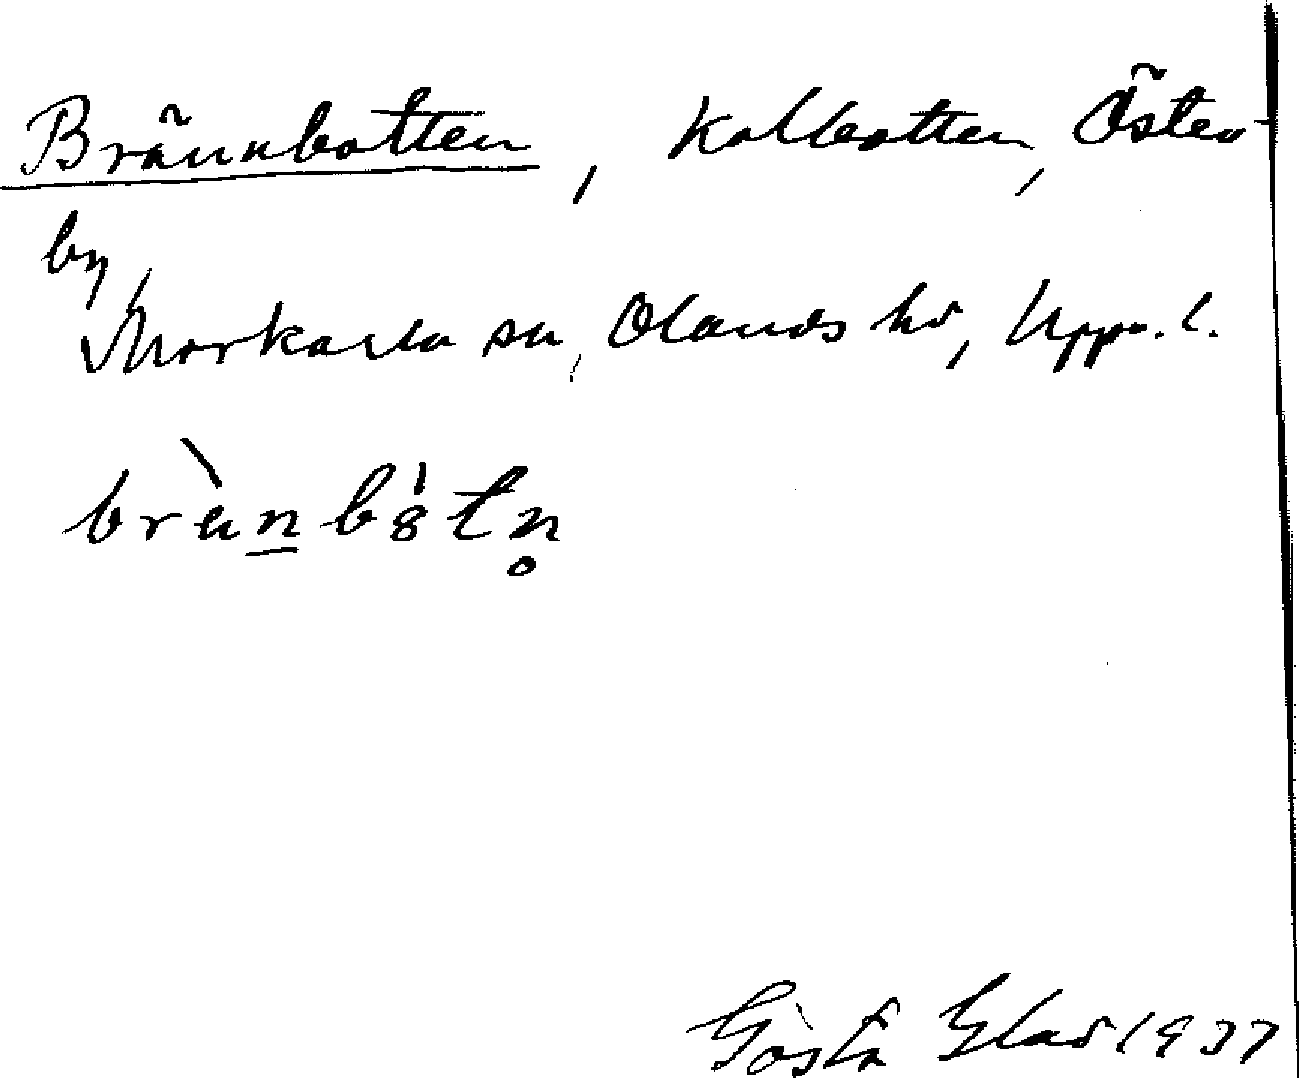 Brännbotten, kolbotten, Öster-
by,
Morkarla sn, Olands hd, Uppl.
brän̲b8́tn̥
Gösta Glad 1937